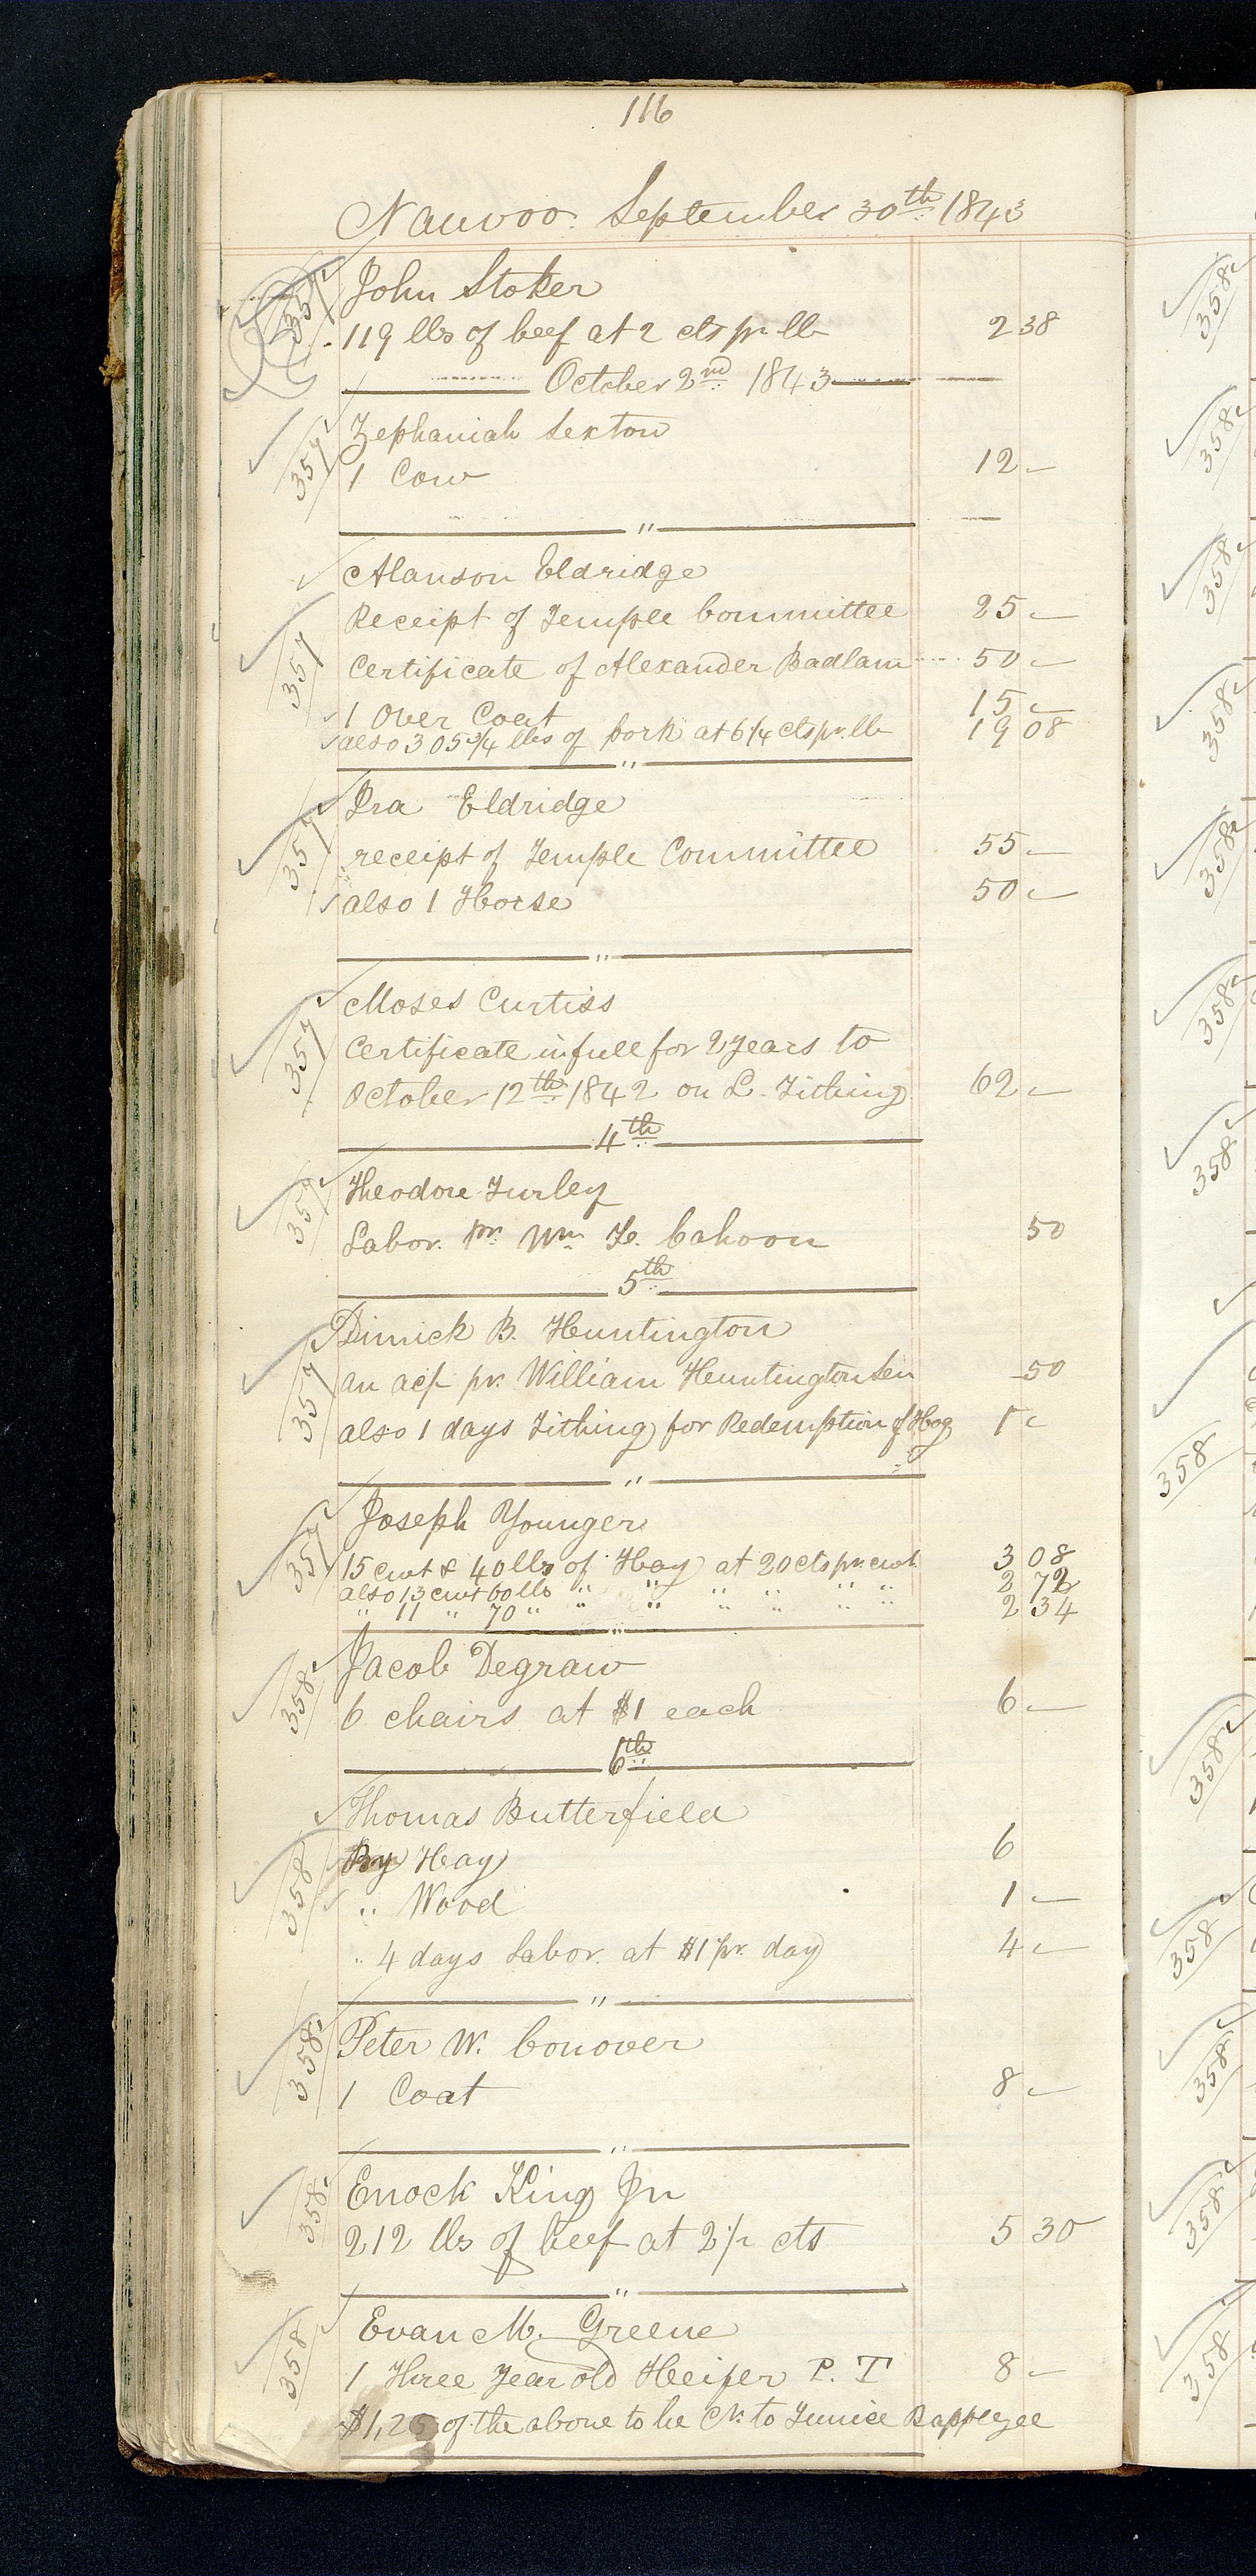 116
Nauvoo. September 30th 1843
357 John Stoker
119 lbs of beef at 2 cts pr lb 2 38
October 2nd 1843
357 Zephaniah Sexton
1 Cow 12 —
"
Alanson Eldridge
Receipt of Temple Committee 25 —
357 Certificate of Alexander Badlam 50 —
1 Over Coat 15 —
also 305 3/4 lbs of pork at 6 1/4 cts pr. lb 19 08
"
Ira Eldridge
357 receipt of Temple Committee 55 —
also 1 Horse 50 —
"
Moses Curtiss
357 Certificate in full for 2 years to
October 12th 1842 on L. Tithing 62 —
4th
357 Theodore Turley
Labor. pr. Wm F. Cahoon 50
5th
Dimick B. Huntington
357 an acpt pr. William Huntington Sen 50
also 1 days Tithing for Redemption of Hog 1 —
"
Joseph Younger
357 15 cwt & 40 lbs of Hay at 20 cts pr. cwt 3 08
also 13 cwt 60 lbs " " " " " " 2 72
" 11 " 70 " " " " " " " 2 34
"
358 Jacob Degraw
6 chairs at $1 each 6 —
6th
Thomas Butterfield
By Hay 6
358 " Wood 1 —
" 4 days Labor. at $1 pr. day 4 —
"
358 Peter W. Conover
1 Coat 8 —
"
358 Enock King Jn
212 lbs of beef at 2 1/2 cts 5 30
"
358 Evan M. Greene
1 Three Year old Heifer P. T 8 —
$1,25 of the above to be Cr. to
358
358
358
358
358
358
358
358
358
358
358
358
358